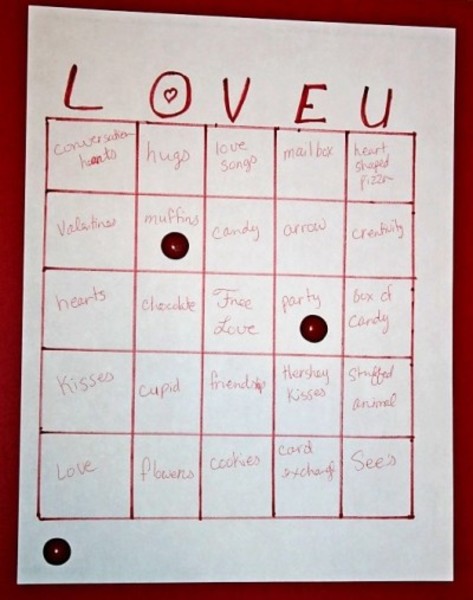 L O V E U
conversation hearts
hugs
love songs
mailbox
heart shaped pizza
Valentines
muffins
candy
arrow
creativity
hearts
chocolate
Free Love
party
box of candy
Kisses
cupid
friendship
Hershey Kisses
Stuffed animal
Love
flowers
cookies
card exchange
See's